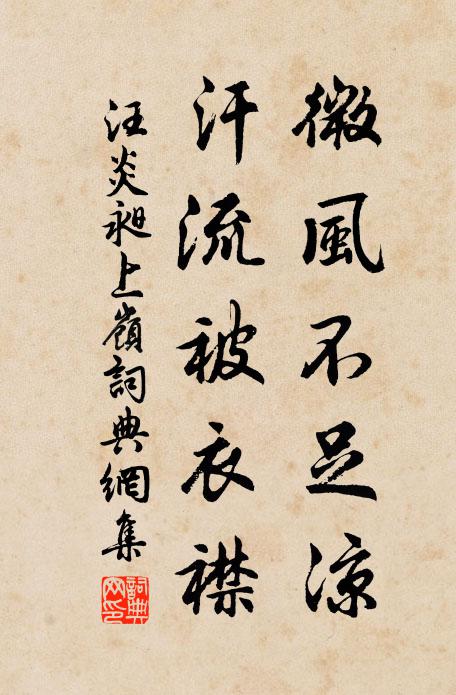 微風不足涼
汗流被衣襟
汪炎昶上嶺詞典網集
詞典網印